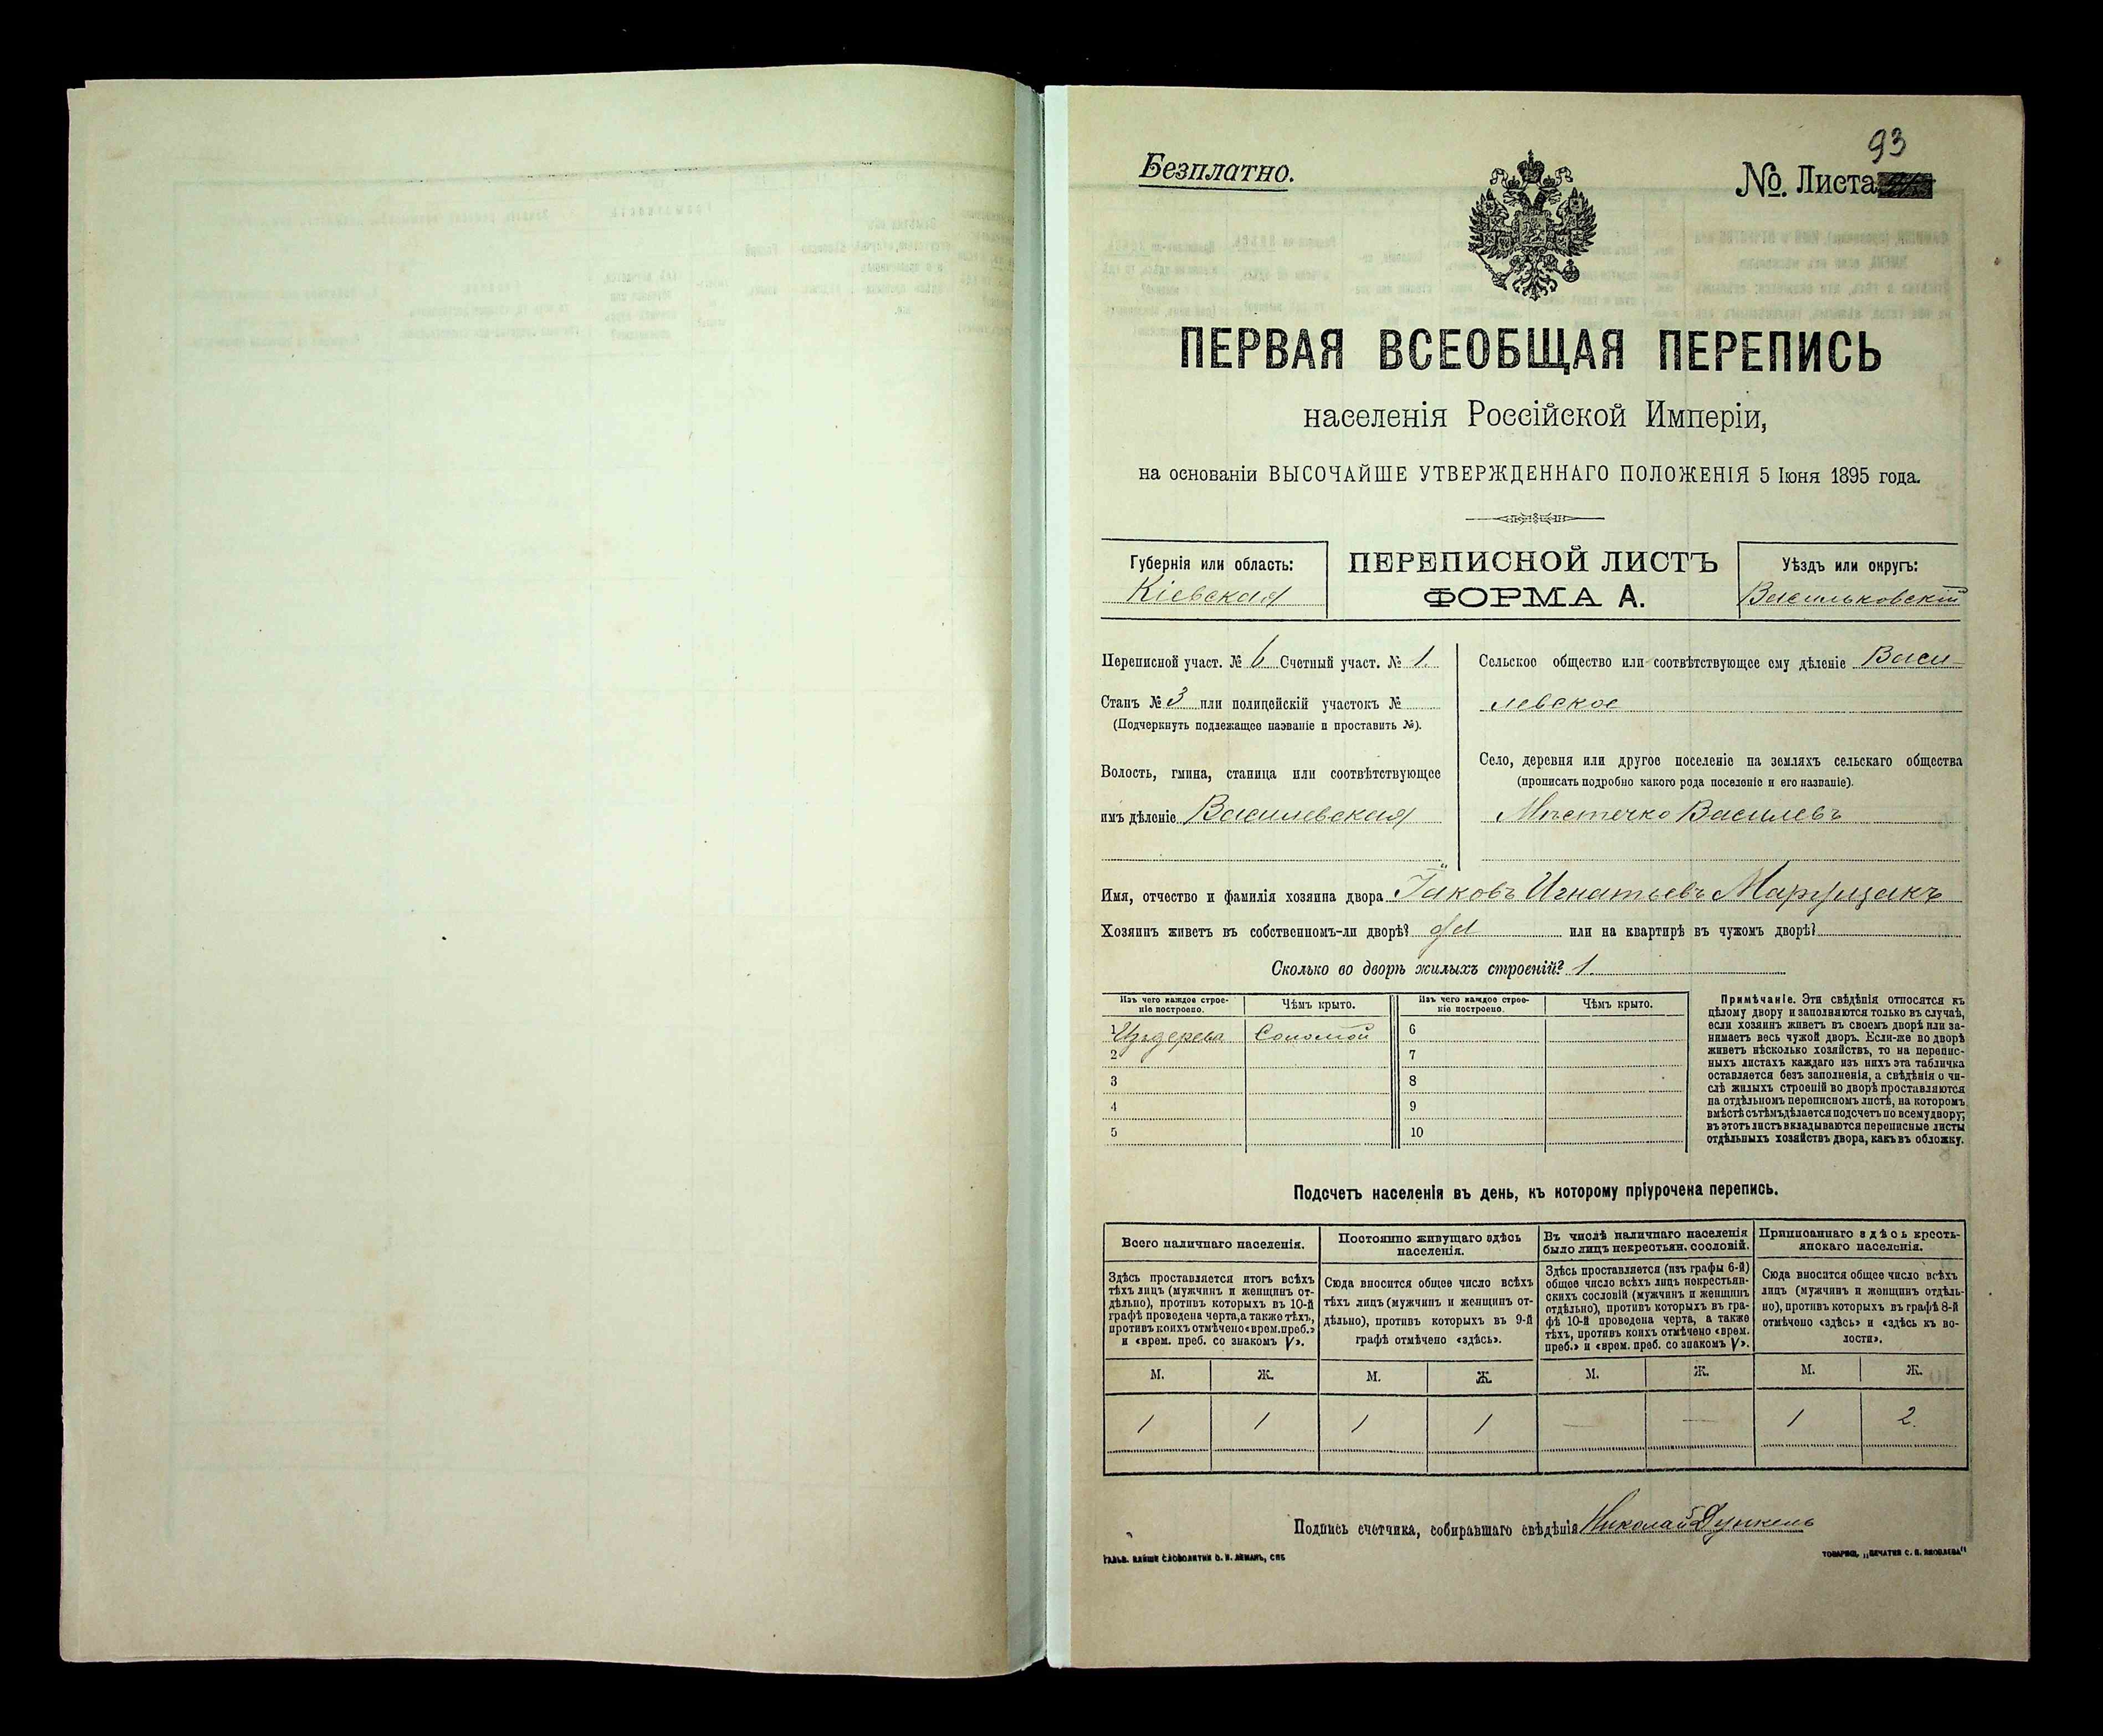 93
Безплатно.
№ Листа
ПЕРВАЯ ВСЕОБЩАЯ ПЕРЕПИСЬ
населенія Россійской Имперіи,
на основаніи ВЫСОЧАЙШЕ УТВЕРЖДЕННАГО ПОЛОЖЕНІЯ 5 Іюня 1895 года.
Губернія или область:
Кіевская
ПЕРЕПИСНОЙ ЛИСТЪ
ФОРМА А.
Уѣздъ или округъ:
Васильковскій
Переписной участ. № 6 Счетный участ. № 1.
Станъ № 3 или полицейскій участокъ №
(Подчеркнуть подлежащее названіе и проставить №).
Волость, гмина, станица или соотвѣтствующее
имъ дѣленіе Василевская
Сельское общество или соотвѣтствующее ему дѣленіе Васи-
левское
Село, деревня или другое поселеніе на земляхъ сельскаго общества
(прописать подробно какого рода поселеніе и его названіе).
Мѣстечко Василевъ
Имя, отчество и фамилія хозяина двора Яковъ Игнатьевъ
Хозяинъ живетъ въ собственномъ-ли дворѣ? да или на квартирѣ въ чужомъ дворѣ?
Сколько во дворѣ жилыхъ строеній? 1.
Изъ чего каждое строе-
ніе построено.
Чѣмъ крыто.
Изъ чего каждое строе-
ніе построено.
Чѣмъ крыто.
1 Изъ дерева Соломой 6
2 7
3 8
4 9
5 10
Примѣчаніе. Эти свѣдѣнія относятся къ
цѣлому двору и заполняются только въ случаѣ,
если хозяинъ живетъ въ своемъ дворѣ или за-
нимаетъ весь чужой дворъ. Если-же во дворѣ
живетъ нѣсколько хозяйствъ, то на перепис-
ныхъ листахъ каждаго изъ нихъ эта табличка
оставляется безъ заполненія, а свѣдѣнія о чи-
слѣ жилыхъ строеній во дворѣ проставляются
на отдѣльномъ переписномъ листѣ, на которомъ
вмѣстѣ съ тѣмъ дѣлается подсчетъ по всему двору;
въ этотъ листъ вкладываются переписные листы
отдѣльныхъ хозяйствъ двора, какъ въ обложку.
Подсчетъ населенія въ день, къ которому пріурочена перепись.
Всего наличнаго населенія.
Здѣсь проставляется итогъ всѣхъ
тѣхъ лицъ (мужчинъ и женщинъ от-
дѣльно), противъ которыхъ въ 10-й
графѣ проведена черта, а также тѣхъ,
противъ коихъ отмѣчено «врем. преб.»
и «врем. преб. со знакомъ V».
Постоянно живущаго здѣсь
населенія.
Сюда вносится общее число всѣхъ
тѣхъ лицъ (мужчинъ и женщинъ от-
дѣльно), противъ которыхъ въ 9-й
графѣ отмѣчено «здѣсь».
Въ числѣ наличнаго населенія
было лицъ некрестьян. сословій.
Здѣсь проставляется (изъ графы 6-й)
общее число всѣхъ лицъ некрестьян-
скихъ сословій (мужчинъ и женщинъ
отдѣльно), противъ которыхъ въ гра-
фѣ 10-й проведена черта, а также
тѣхъ, противъ коихъ отмѣчено «врем.
преб.» и «врем. преб. со знакомъ V».
Приписаннаго здѣсь кресть-
янскаго населенія.
Сюда вносится общее число всѣхъ
лицъ (мужчинъ и женщинъ отдѣль-
но), противъ которыхъ въ графѣ 8-й
отмѣчено «здѣсь» и «здѣсь къ во-
лости».
М. Ж. М. Ж. М. Ж. М. Ж.
1 1 1 1 — — 1 2.
Подпись счетчика, собиравшаго свѣдѣнія Николай
ТОВАРИЩ. „ПЕЧАТНЯ С. П. ЯКОВЛЕВА"